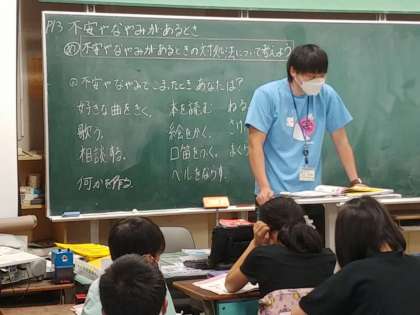 P13 不安やなやみがあるとき
め 不安やなやみがあるときの対処法について考えよう
Q 不安やなやみでこまったときあなたは?
好きな曲をきく。 本を読む ねる
歌う。 絵をかく。
相談する。 口笛をふく。
何かを作る ベルをならす。